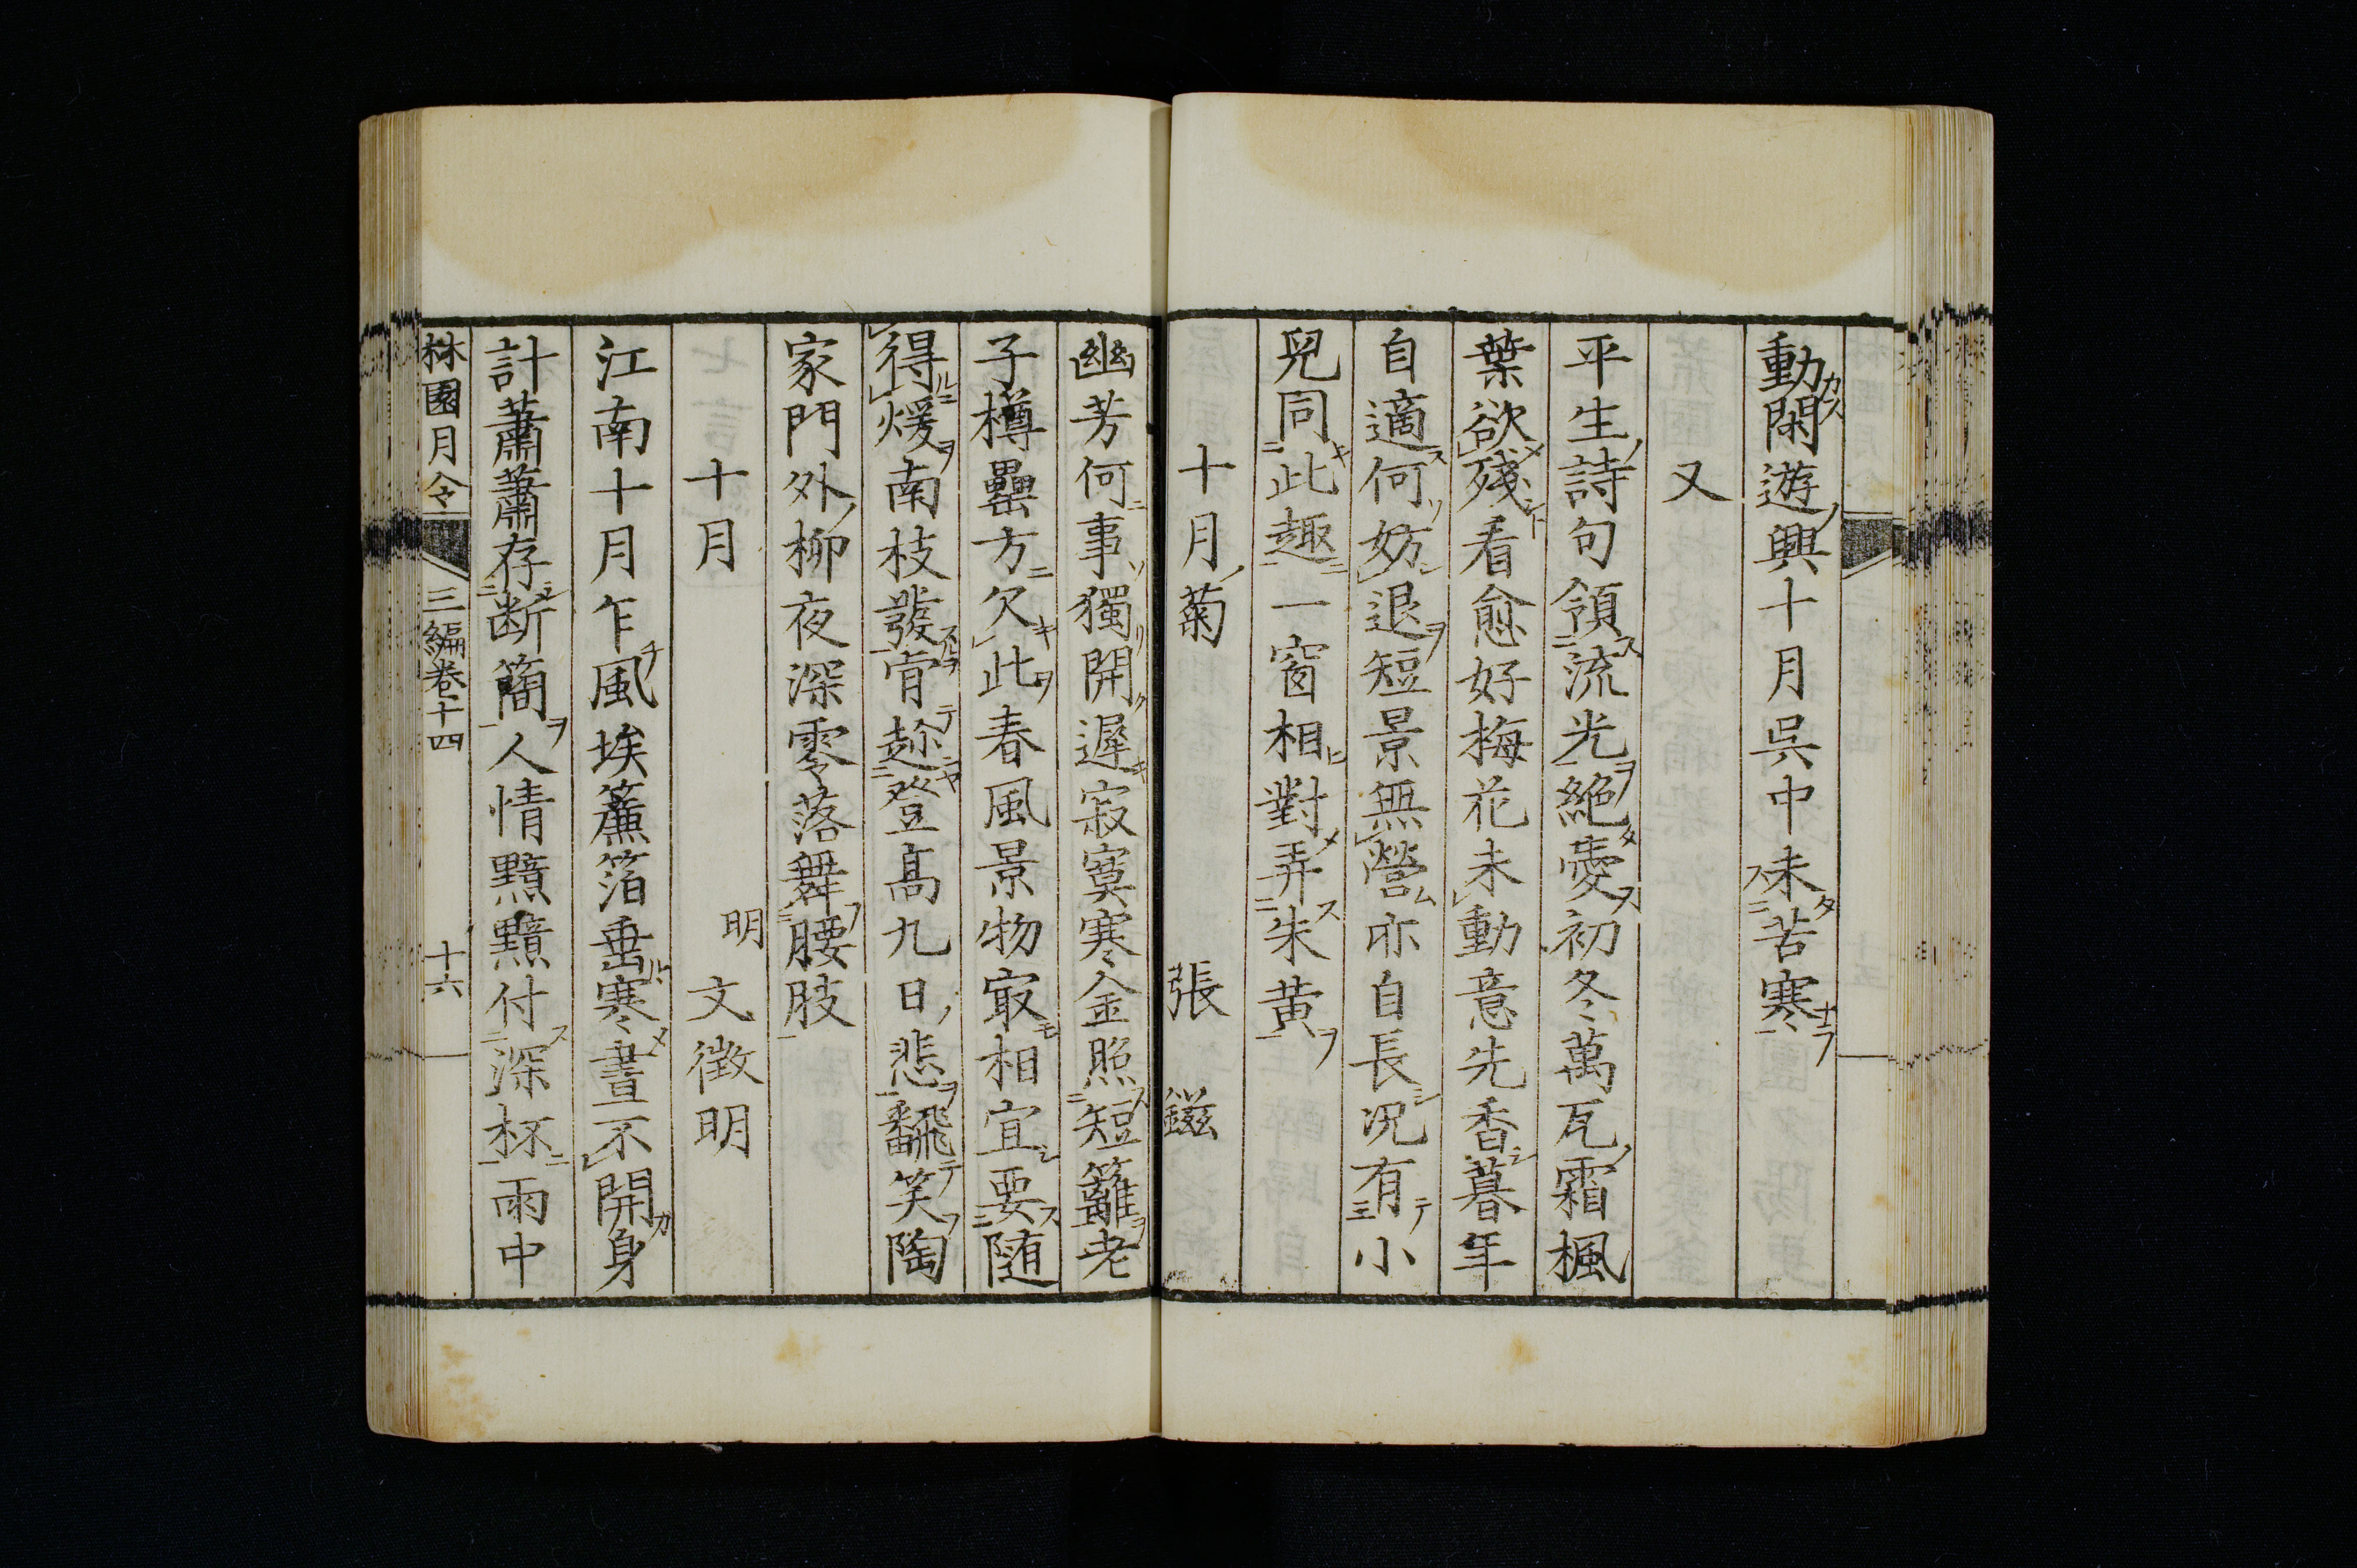 動閑遊興十月吳中未苦寒
又
平生詩句領流光絶愛初冬萬瓦霜楓
葉欲殘看愈好梅花未動意先香暮年
自適何妨退短景無營亦自長況有小
兒同此趣一窗相對弄朱黄
十月菊 張鎡
幽芳何事獨開遲寂寞寒金照短籬老
子樽罍方欠此春風景物㝡相宜要随
得煖南枝發肯趂登髙九日悲翻笑陶
家門外柳夜深零落舞腰肢
十月 明 文徴明
江南十月乍風埃簾箔垂寒晝不開身
計蕭蕭存断簡人情黯黯付深杯雨中
林園月令 三編卷十四 十六